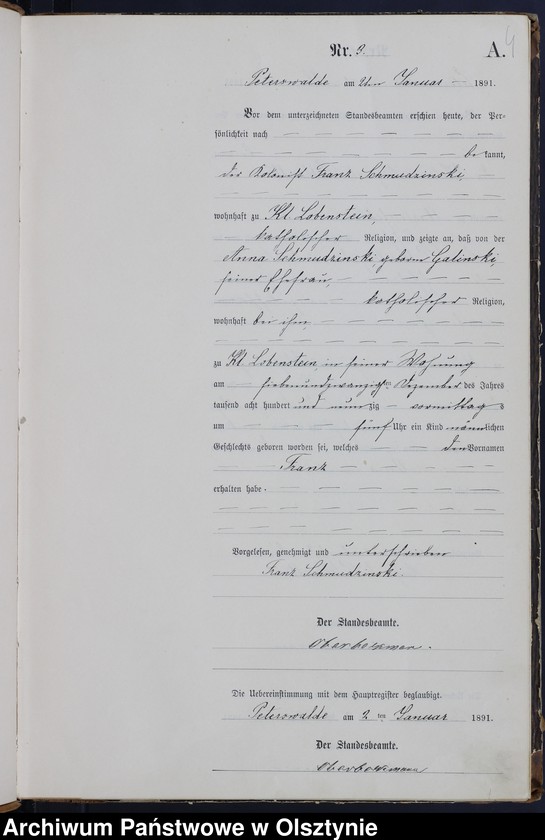 Nr. 2.
A. 4
Peterswalde am 2ten Januar 1891.
Vor dem unterzeichneten Standesbeamten erschien heute, der Per-
sönlichkeit nach
be kannt,
der Kolonist Franz Schmudzinski
wohnhaft zu Kl Lobenstein,
katholischer Religion, und zeigte an, daß von der
Anna Schmudzinski, geborene Galinski,
seiner Ehefrau,
katholischer Religion,
wohnhaft bei ihm
zu Kl Lobenstein, in seiner Wohnung
am siebenundzwanzigsten Dezember des Jahres
tausend acht hundert und neunzig vormittags
um fünf Uhr ein Kind männlichen
Geschlechts geboren worden sei, welches den Vornamen
Franz
erhalten habe.
Vorgelesen, genehmigt und unterschrieben
Franz Schmudzinski.
Der Standesbeamte.
Die Uebereinstimmung mit dem Hauptregister beglaubigt.
Peterswalde am 2ten Januar 1891.
Der Standesbeamte.
Archiwum Państwowe w Olsztynie